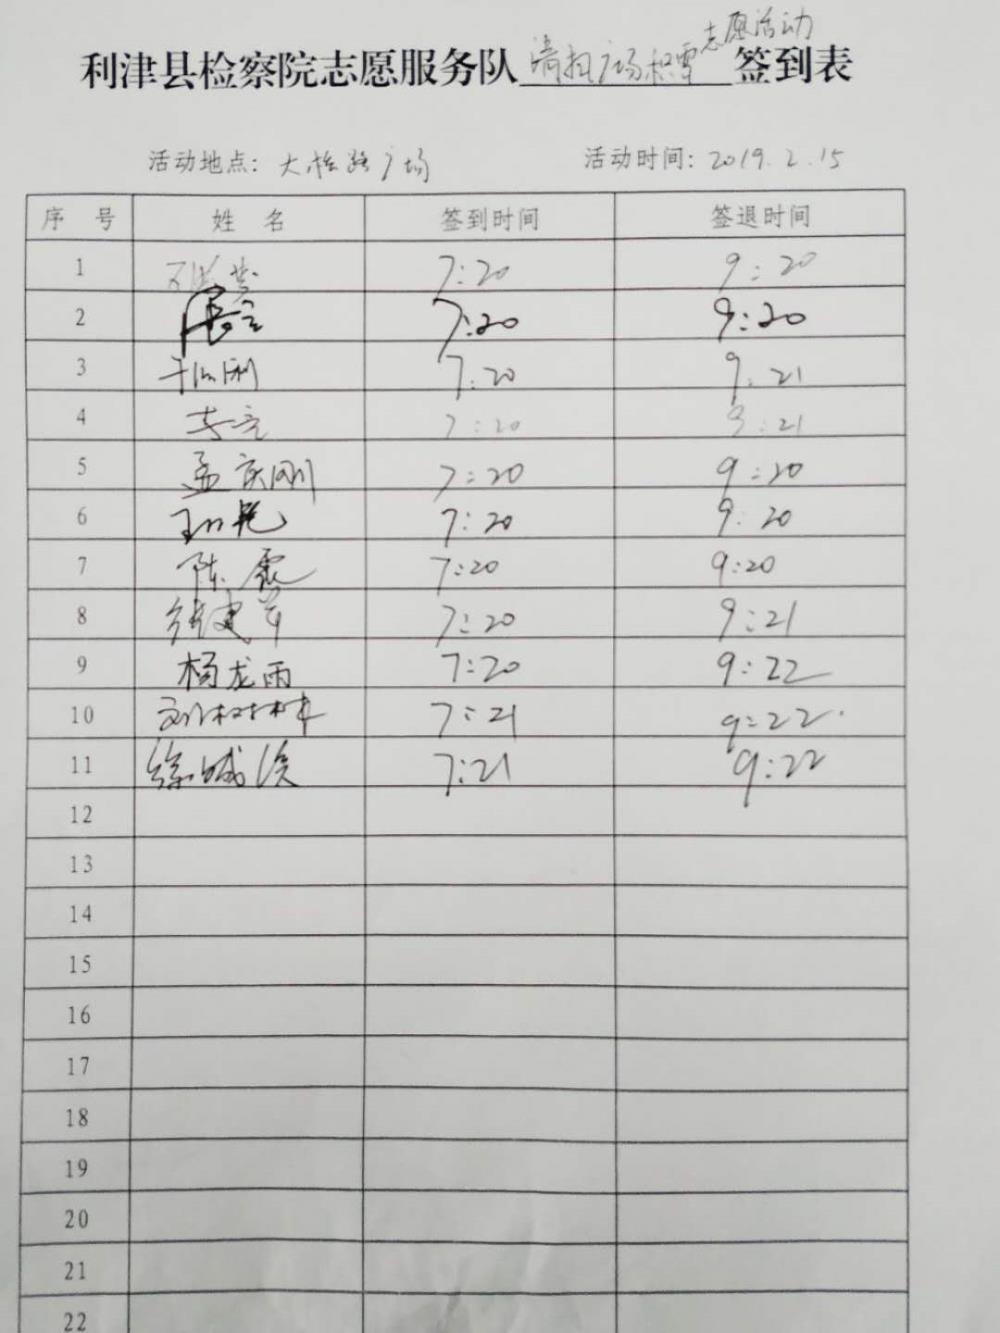 利津县检察院志愿服务队清扫广场积雪志愿活动签到表
活动地点：大桥路广场 活动时间：2019.2.15
序号 姓名 签到时间 签退时间
1 7:20 9:20
2 7:20 9:20
3 7:20 9:21
4 李亮 7:20 9:21
5 孟庆刚 7:20 9:20
6 7:20 9:20
7 陈霞 7:20 9:20
8 张建芳 7:20 9:21
9 杨龙雨 7:20 9:22
10 刘树林 7:21 9:22
11 7:21 9:22
12
13
14
15
16
17
18
19
20
21
22